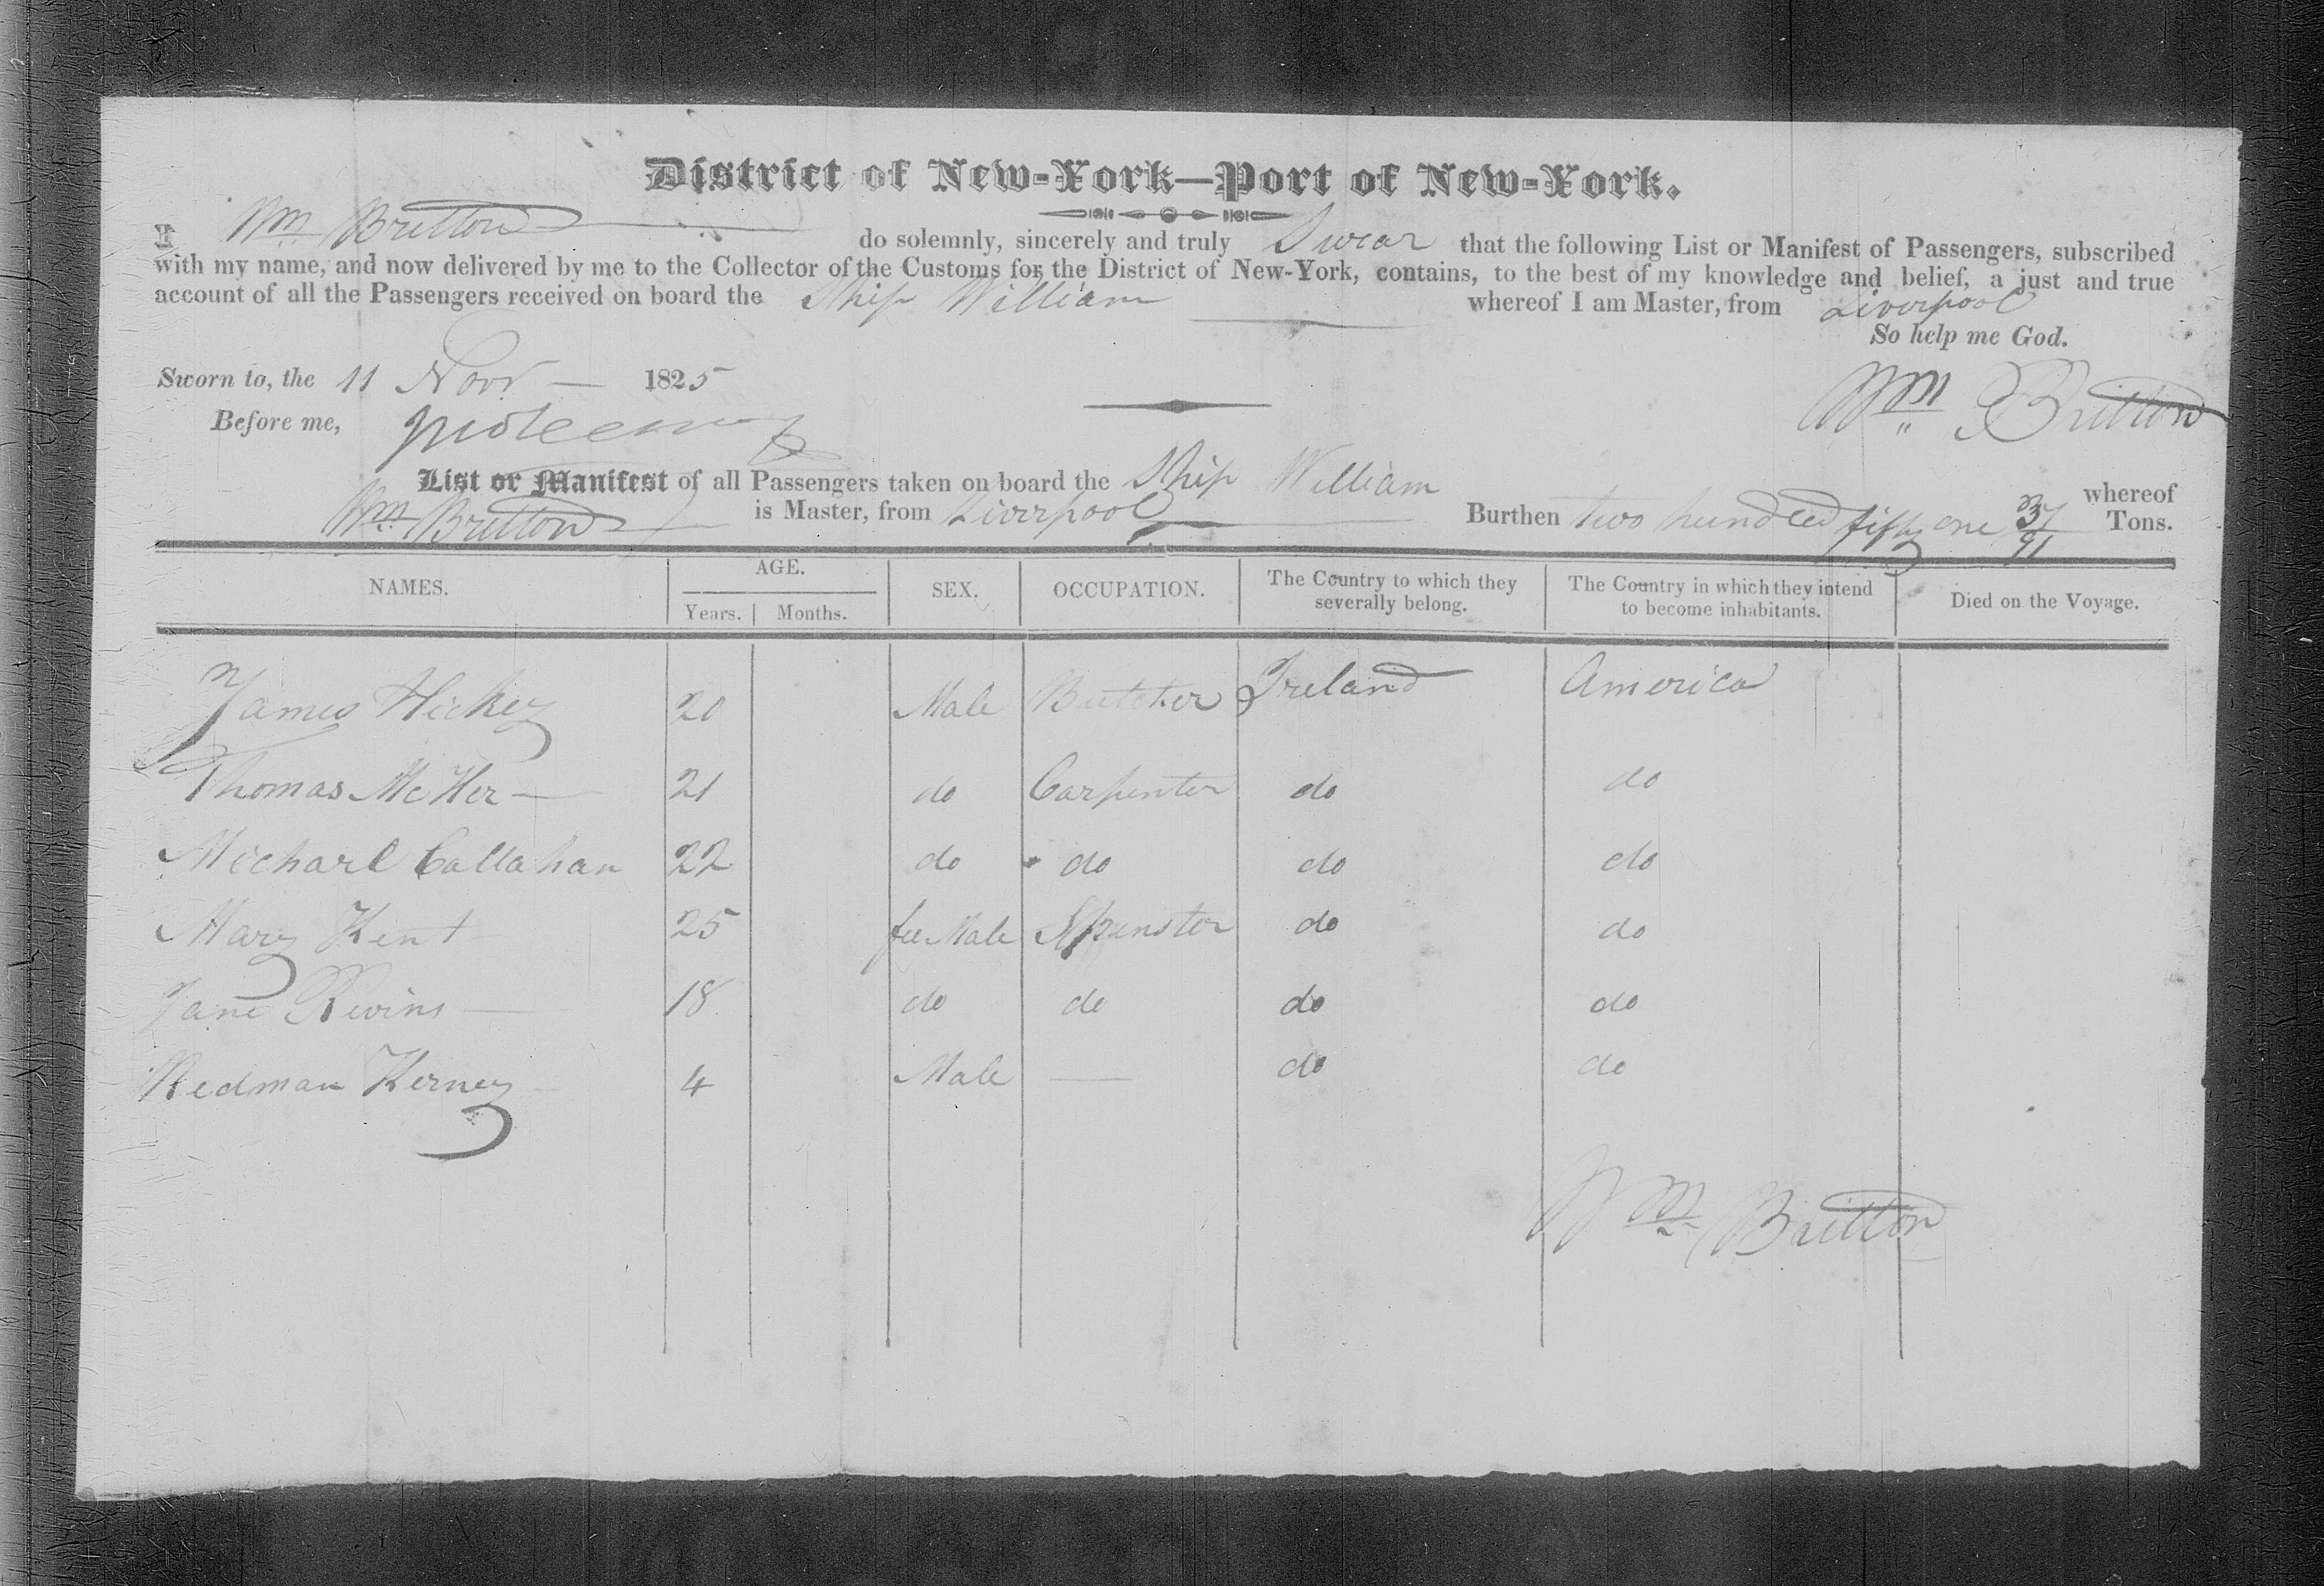 District of New-York—Port of New-York.
I Wm Britton do solemnly, sincerely and truly Swear that the following List or Manifest of Passengers, subscribed
with my name, and now delivered by me to the Collector of the Customs for the District of New-York, contains, to the best of my knowledge and belief, a just and true
account of all the Passengers received on board the Ship William whereof I am Master, from Liverpool
So help me God.
Sworn to, the 11 Novr 1825
Wm Britton
Before me,
List or Manifest of all Passengers taken on board the Ship William whereof
Wm Britton is Master, from Liverpool Burthen two hundred fifty one 37/91 Tons.
NAMES. AGE. SEX. OCCUPATION. The Country to which they severally belong. The Country in which they intend to become inhabitants. Died on the Voyage.
Years. Months.
James Hickey 20 Male Butcher Ireland America
Thomas McKer 21 do Carpenter do do
Michael Callahan 22 do do do do
Mary Kent 25 feeMale Spunster do do
Jane Rivins 18 do do do do
Redman Kerney 4 Male — do do
Wm Britton